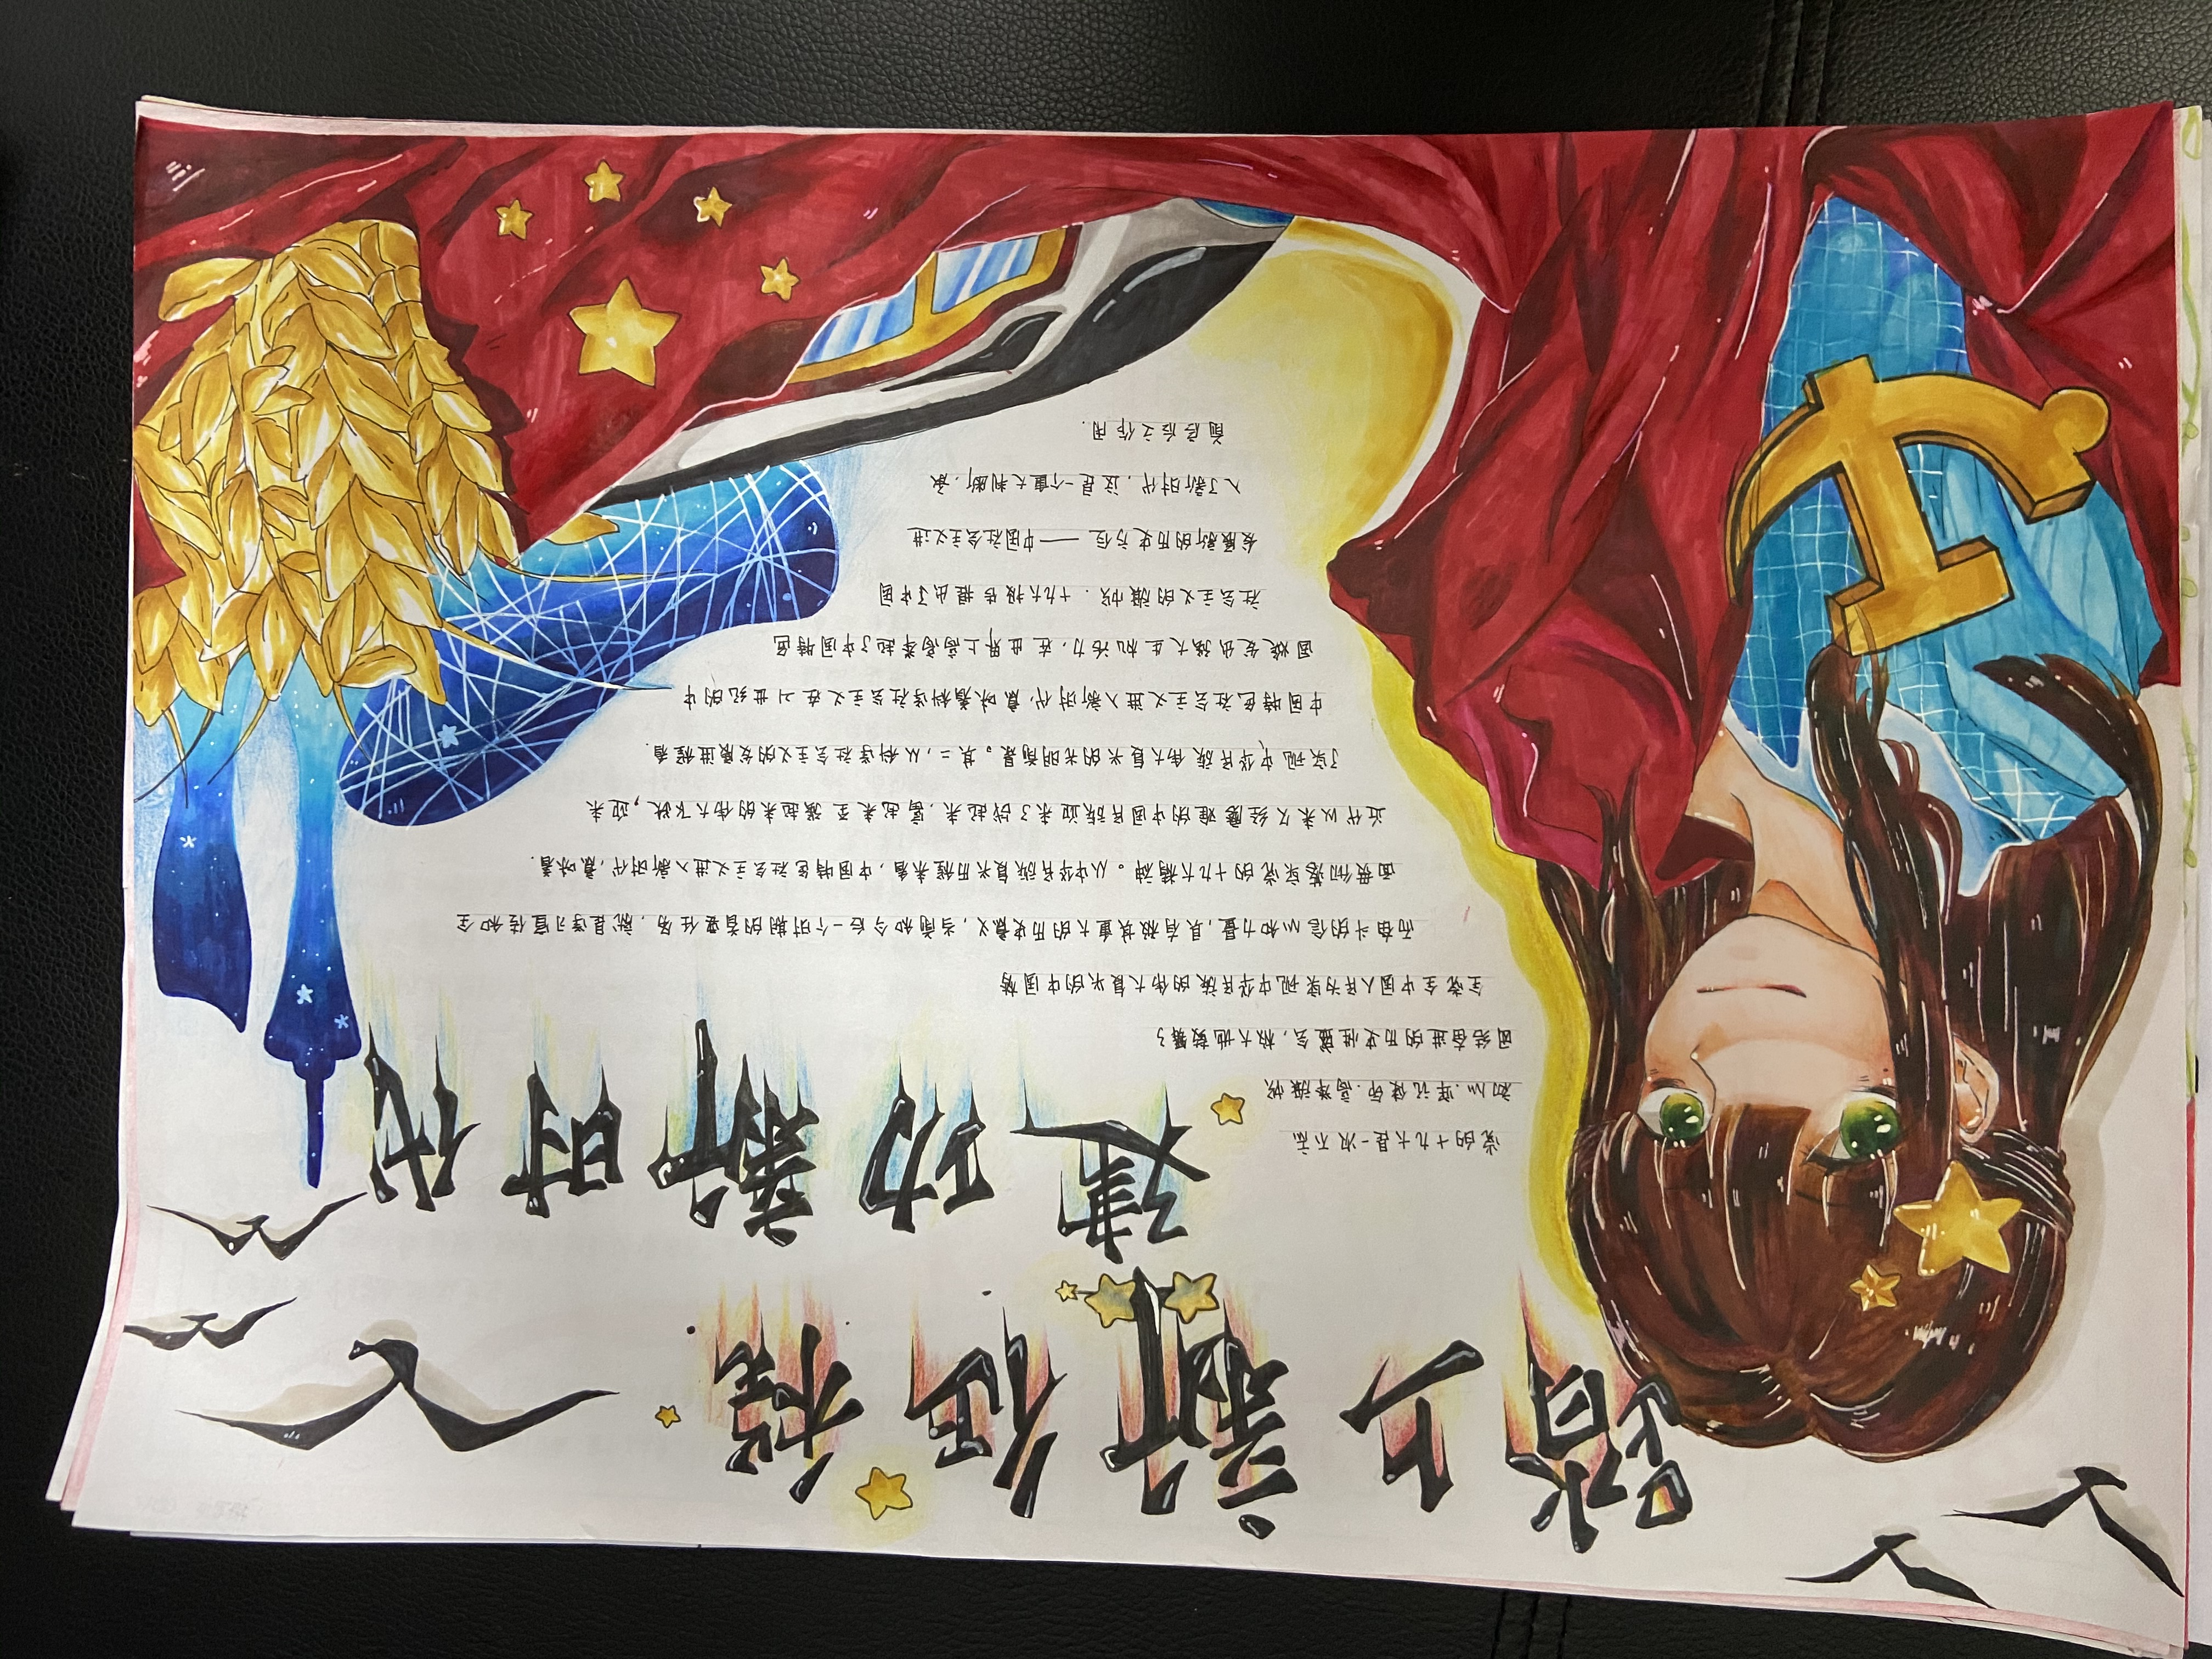 踏上新征程
建功新时代
党的十九大是一次不忘
初心.牢记使命.高举旗帜
团结奋进的历史性盛会,极大地鼓舞了
全党全中国人民为实现中华民族的伟大复兴的中国梦
而奋斗的信心和力量,具有极其重大的历史意义,当前和今后一个时期的首要任务,就是学习宣传和全
面贯彻落实党的十九大精神。从中华民族复兴历程来看,中国特色社会主义进入新时代,意味着.
近代以来久经磨难的中国民族迎来了战起来,富起来至强起来的伟大飞跃,迎来
了实现中华民族伟大复兴的光明前景。其二,从科学社会主义的发展进程看.
中国特色社会主义进入新时代,意味着科学社会主义在21世纪的中
国焕发出强大生和活力,在世界上高高举起了中国特色
社会主义的旗帜.十九大报告提出了中国
发展新的历史方位——中国社会主义进
入了新时代,这是一个重大判断.承
前启后之作用.